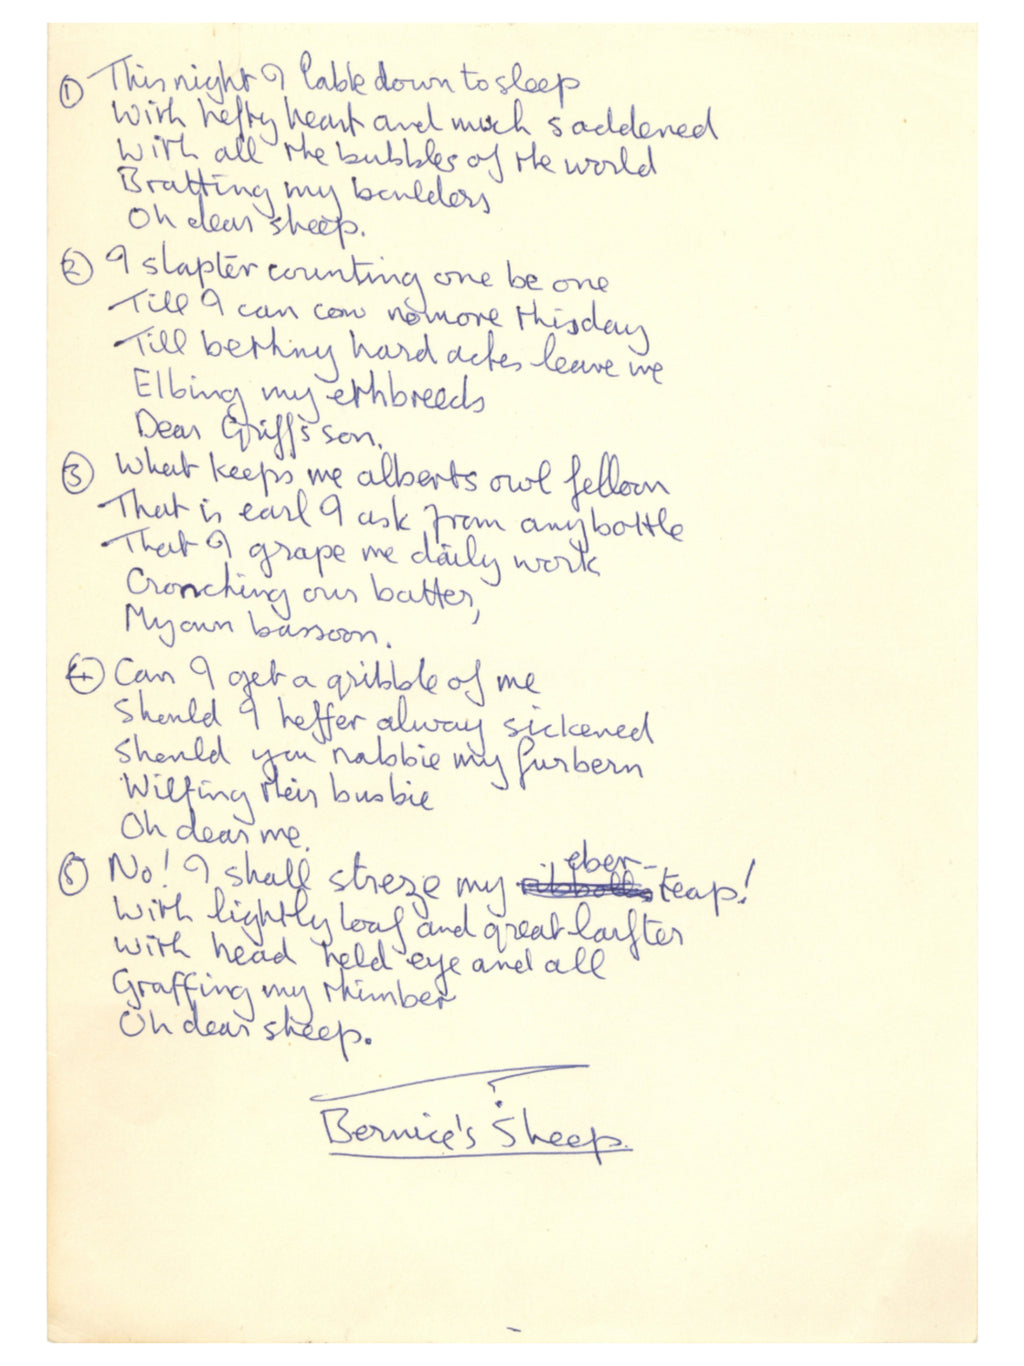 ① This night I lable down to sleep
With hefty heart and much saddened
With all the bubbles of the world
Bratting my boulders
Oh dear sheep.
② I slapter counting one be one
Till I can cow nomore thisday
Till bethny hard actes leave me
Elbing my ethbreeds
Dear Griff's son.
③ What keeps me alberts owl felloon
That is earl I ask from anybottle
That I grape me daily work
Cronching our batter,
My own bassoon.
④ Can I get a gribble of me
Should I heffer alway sickened
Should you nabbie my furbern
Wilfing their busbie
Oh dear me.
⑤ No! I shall streze my eber-teap!
With lightly loaf and great larfter
With head held eye and all
Graffing my rhimber
Oh dear sheep.
Bernice's Sheep.